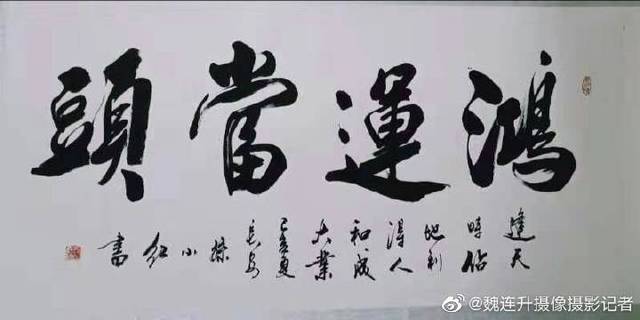 鴻運當頭
達天
時佔
地利
得人
和成
大業
己亥夏
長安
小紅
書
@魏连升摄像摄影记者